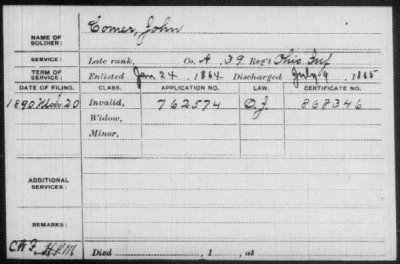 NAME OF SOLDIER: Comer, John
SERVICE: Late rank, Co. A, 39 Reg't Ohio Inf
TERM OF SERVICE: Enlisted Jan 24, 1864, Discharged July 9, 1865
DATE OF FILING. CLASS. APPLICATION NO. LAW. CERTIFICATE NO.
1890 Mch 20 Invalid, 762574 O.J. 868346
Widow,
Minor,
ADDITIONAL SERVICES:
REMARKS:
Died , 1 , at